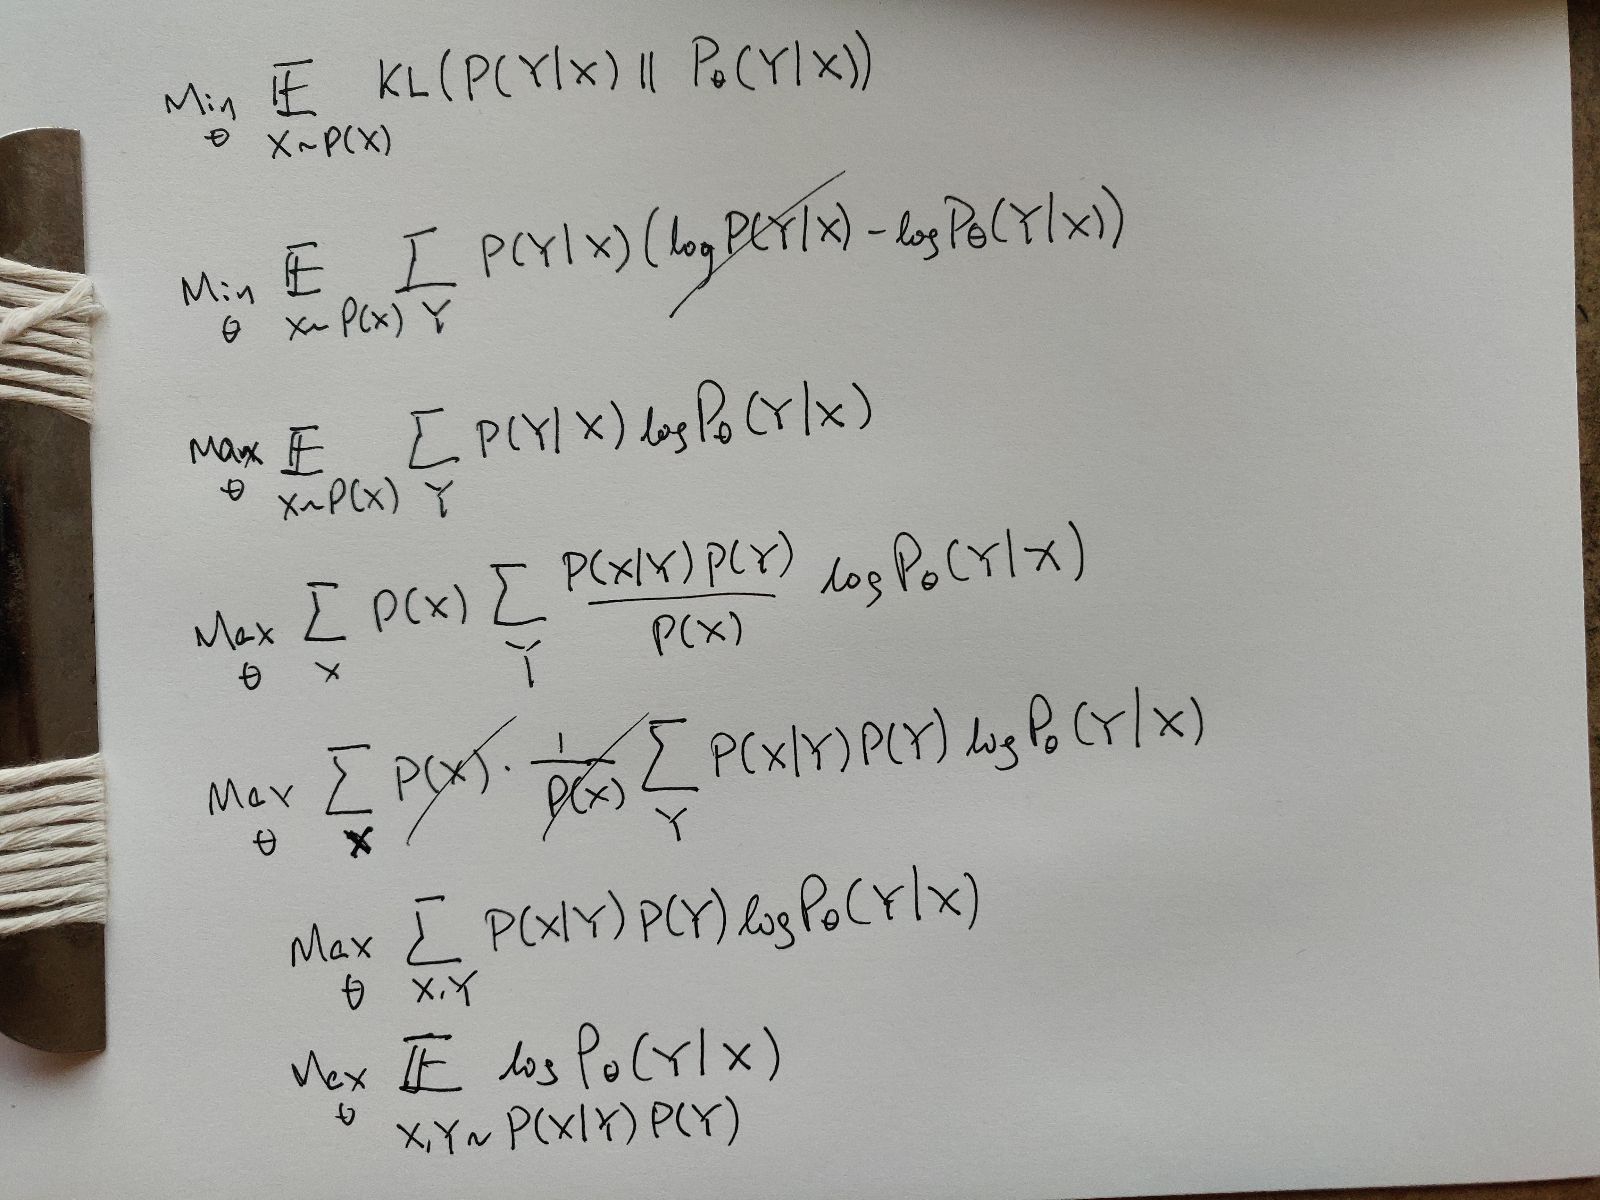 Min θ 𝔼 X~P(X) KL(P(Y|X) || Pθ(Y|X))
Min θ 𝔼 X~P(X) Σ Y P(Y|X)(log P(Y|X) - log Pθ(Y|X))
Max θ 𝔼 X~P(X) Σ Y P(Y|X) log Pθ(Y|X)
Max θ Σ X P(X) Σ Y P(X|Y)P(Y) / P(X) log Pθ(Y|X)
Max θ Σ X P(X) · 1 / P(X) Σ Y P(X|Y)P(Y) log Pθ(Y|X)
Max θ Σ X,Y P(X|Y)P(Y) log Pθ(Y|X)
Max θ 𝔼 X,Y~P(X|Y)P(Y) log Pθ(Y|X)